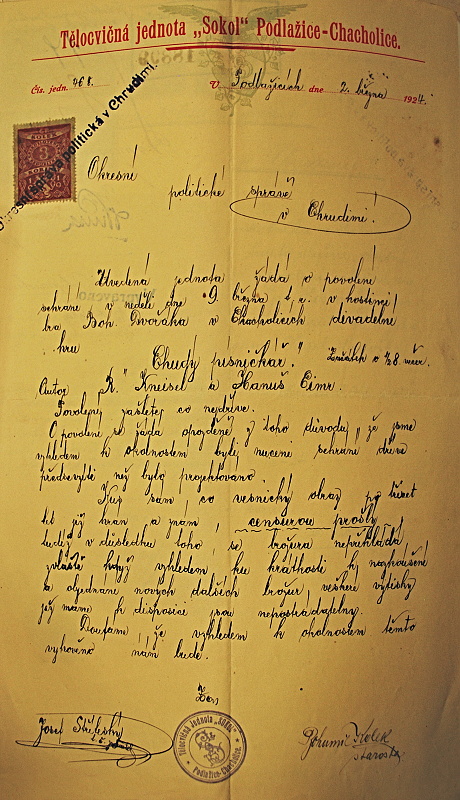 Tělocvičná jednota „Sokol" Podlažice-Chacholice.
Čís. jedn. 468. V Podlažicích dne 2. března 1924.
KOLEK
Okresní správa politická v Chrudimi.
Okresní
politické správě
v Chrudimi.
Uvedená jednota žádá o povolení
sehráti v neděli dne 9. března t. r. v hostinci
bra Boh. Dvořáka v Chacholicích divadelní
hru
„Chudý písničkář." Začátek o ½8. več.
Autor R. Kneisel a Hanuš Eimr.
Povolený zašlete co nejdříve.
O povolení se žádá opožděně z toho důvodu, že jsme
vzhledem k okolnostem byli nuceni sehráti dříve
představení než bylo projektováno.
Kus sám co vesnický obraz po
let již hrán a znám, censurou prošlý
tudíž v důsledku toho, se brožura nepřikládá
zvláště když vzhledem ku krátkosti k
a objednání nových dalších brožur veškeré výtisky
jež máme k disposici jsou nepostrádatelny.
Doufáme, že vzhledem k okolnostem těmto
vyhověno nám bude.
Josef
Bohumil Kolek
starosta
Tělocvičná Jednota „SOKOL"
Podlažice-Chacholice.